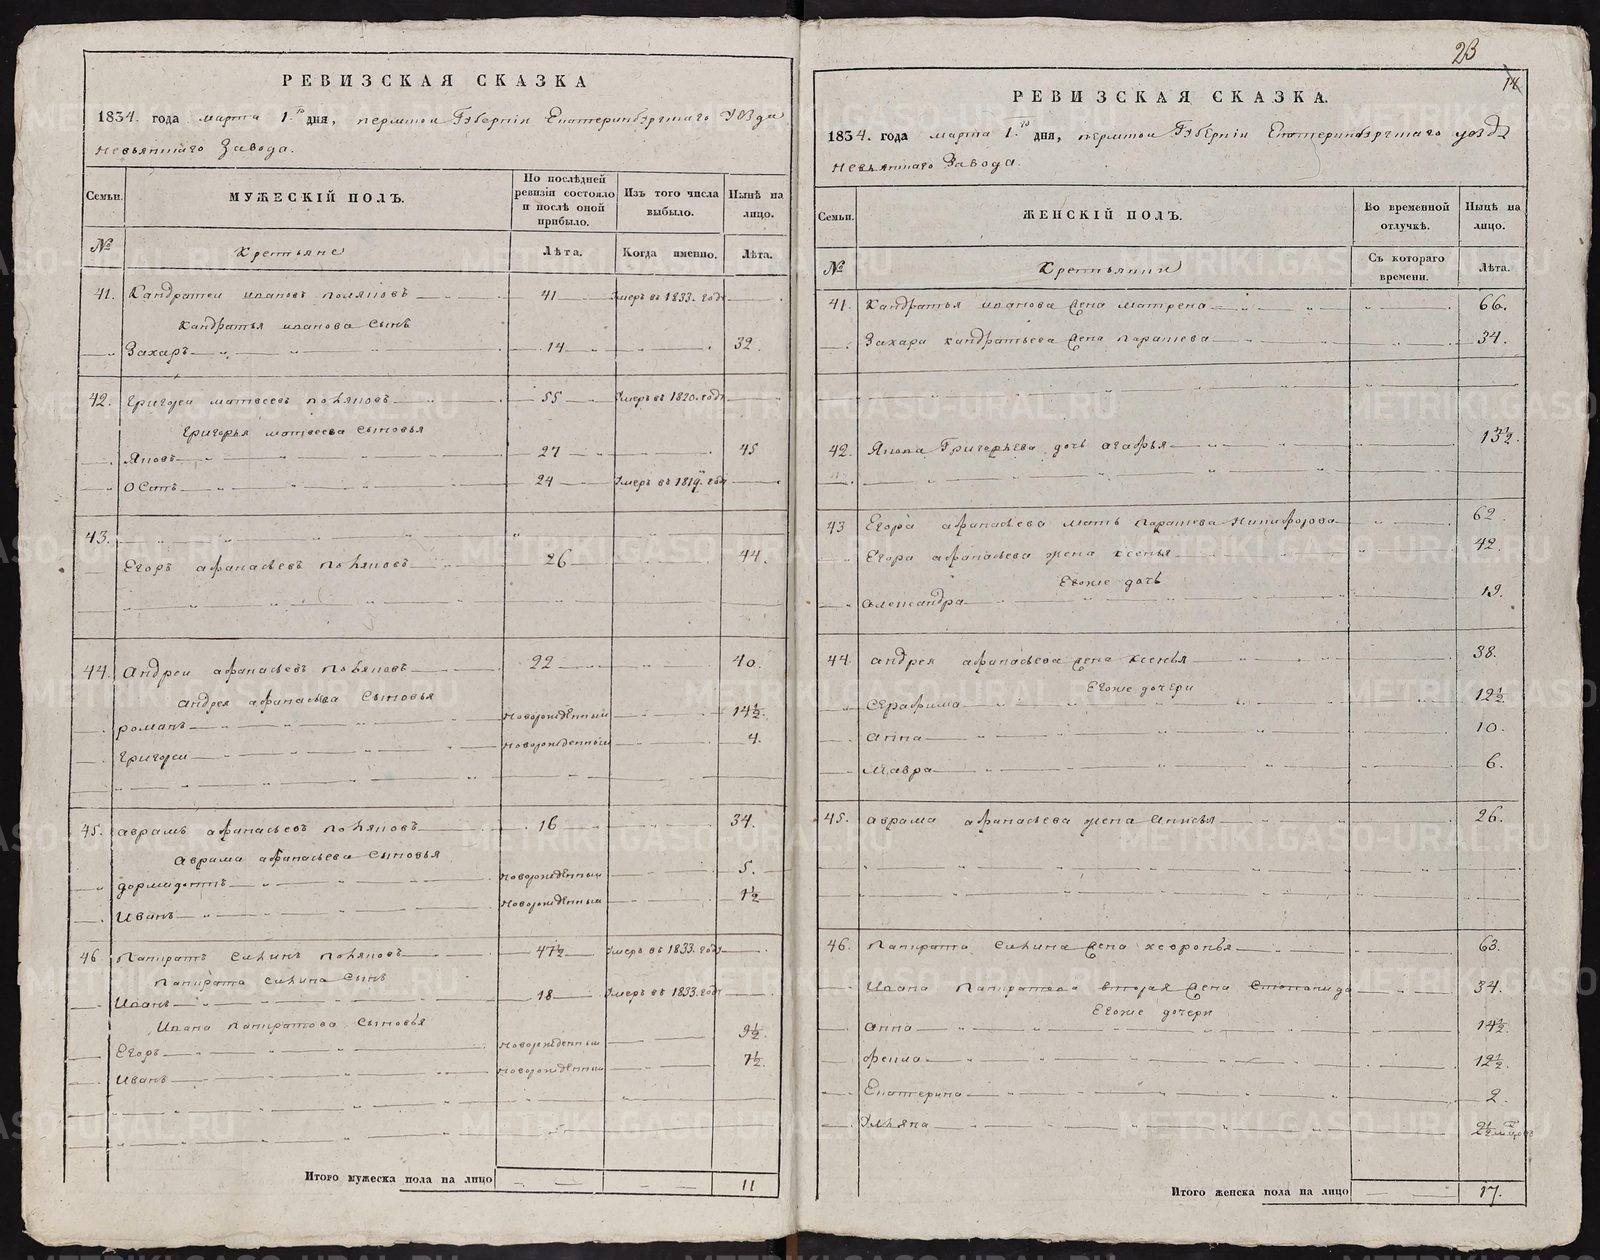 РЕВИЗСКАЯ СКАЗКА
1834. года марта 1.го дня, пермской Губернии Екатеринбургскаго Уезда
невьянскаго Завода.
Семьи.
МУЖЕСКІЙ ПОЛЪ.
По послѣдней ревизіи состояло и послѣ оной прибыло.
Изъ того числа выбыло.
Нынѣ на лицо.
№
Крестьяне
Лѣта.
Когда именно.
Лѣта.
41. Кандратеи ивановъ поляковъ 41 Умеръ въ 1833. годе
Кандратья иванова сынъ
Захаръ 14 32.
42. Григореи матвеевъ поляковъ 55 Умеръ въ 1820. годе
Григорья матвеева сыновья
Яковъ 27 45
Осипъ 24 Умеръ въ 1819. годе
43.
Егоръ афанасьевъ поляковъ 26 44.
44. Андреи афанасьевъ поляковъ 22 40.
Андрея афанасьева сыновья
романъ новорожденный 14 1/2.
Григореи новорожденный 4.
45. аврамъ афанасьевъ поляковъ 16 34.
аврама афанасьева сыновья
дормидонтъ новорожденный 5.
Иванъ новорожденный 1 1/2
46 Панкратъ силинъ поляковъ 47 1/2 Умеръ въ 1833. годе
Панкрата силина сынъ
Иванъ 18 Умеръ въ 1833. годе
Ивана панкратова сыновья
Егоръ новорожденный 9 1/2.
Иванъ новорожденный 7 1/2.
Итого мужеска пола на лицо 11
23
14
РЕВИЗСКАЯ СКАЗКА.
1834. года марта 1.го дня, пермской Губерніи Екатеринбургскаго уезда
невьянскаго Завода.
Семьи.
ЖЕНСКІЙ ПОЛЪ.
Во временной отлучкѣ.
Нынѣ на лицо.
№
Крестьянки
Съ котораго времени.
Лѣта.
41. Кандратья иванова жена матрена 66.
Захара кандратьева жена парасева 34.
42. Якова Григорьева дочь агафья 13 1/2.
43 Егора афанасьева мать парасева Никифорова 62.
Егора афанасьева жена ксенья 42.
Евоже дочь
Александра 19.
44. андрея афанасьева жена ксенья 38.
Евоже дочери
Серафима 12 1/2
анна 10.
Мавра 6.
45. аврама афанасьева жена анисья 26.
46. Панкрата силина жена хевронья 63.
Ивана Панкратова вторая жена Степанида 34.
Евоже дочери
анна 14 1/2.
фекла 12 1/2.
Екатерина 2.
Ульяна 2 1/2 мцовъ
Итого женска пола на лицо 17.
METRIKI.GASO-URAL.RU